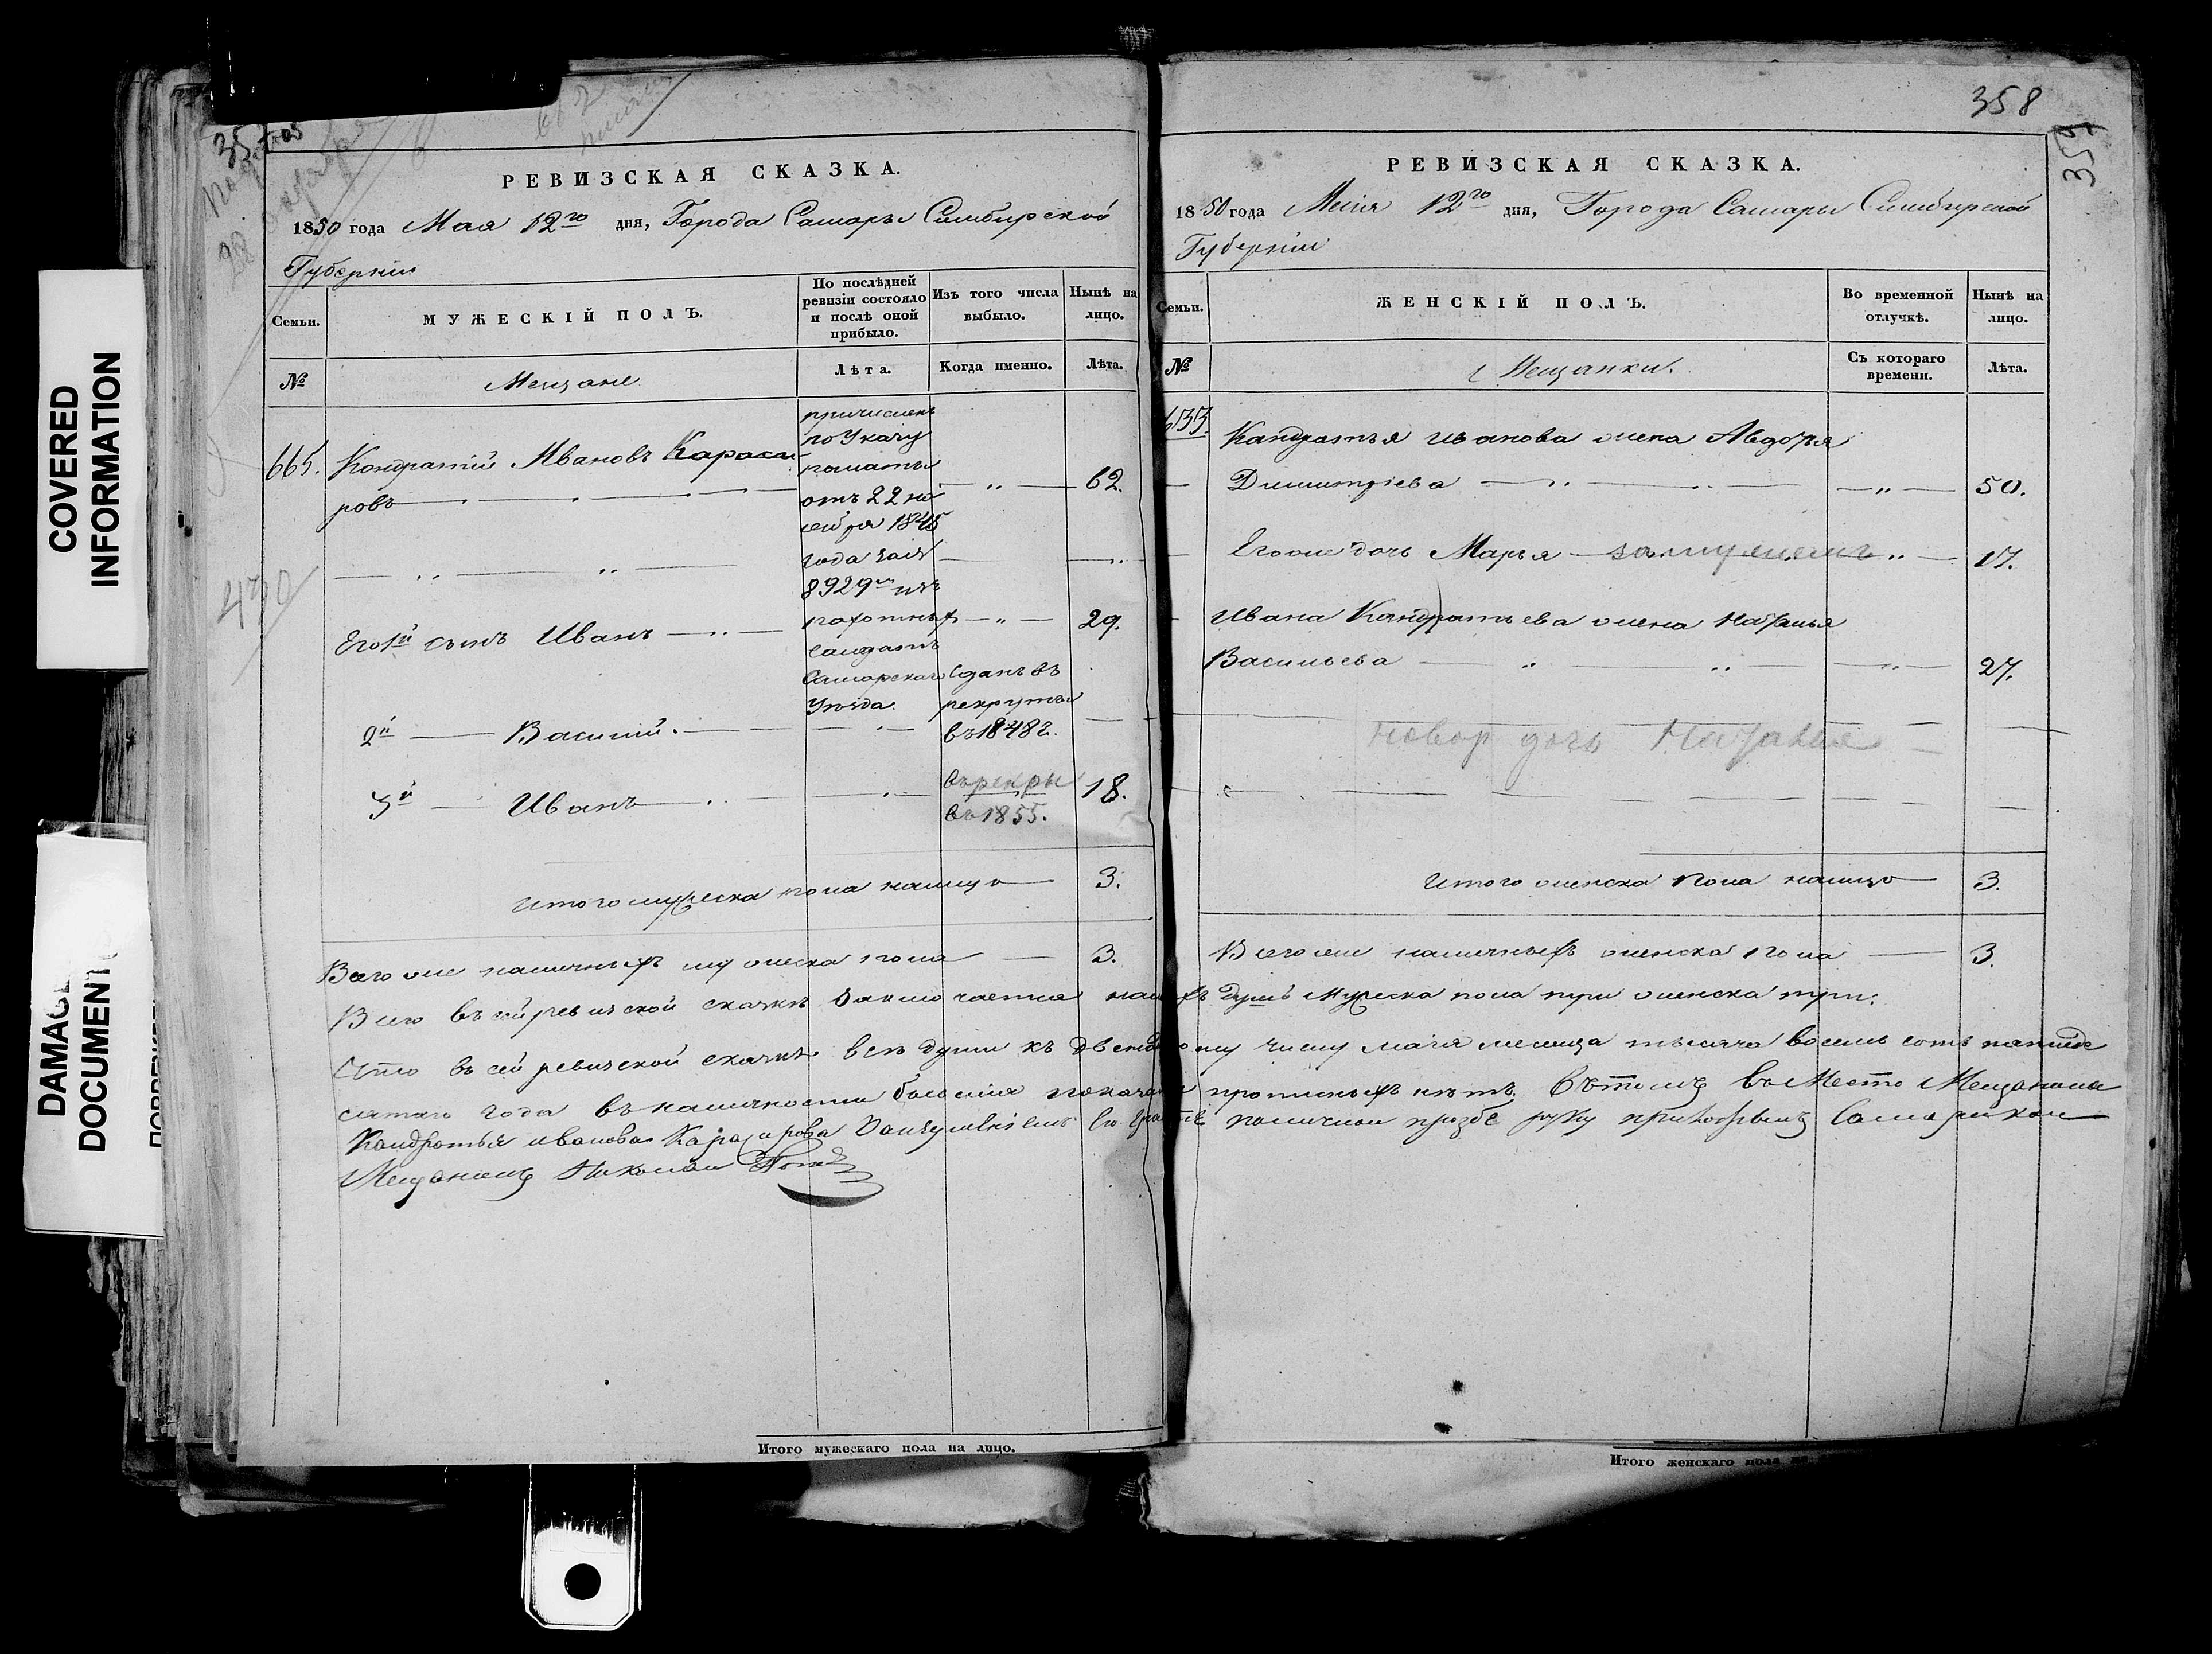 COVERED
INFORMATION
DAMAGED
DOCUMENT
РЕВИЗСКАЯ СКАЗКА.
1850 года Мая 12го дня, Города Самары Симбирской
Губерніи
Семьи.
МУЖЕСКІЙ ПОЛЪ.
По послѣдней ревизіи состояло и послѣ оной прибыло.
Изъ того числа выбыло.
Нынѣ на лицо.
№
Мещане
Лѣта.
Когда именно.
Лѣта.
причисленъ
по Указу
палаты
отъ 22 но
ября 1845
года за №
8929м изъ
пахотныхъ
солдатъ
Самарскаго
Уѣзда.
665. Кондратій Ивановъ Караси
ровъ — 62.
Его 1й сынъ Иванъ — " — 29.
2й — Василій. — Сданъ въ
рекруты
въ 1848 г.
3й — Иванъ — въ рекры
въ 1855. 18.
Итого мужеска пола налицо — 3.
Всего же наличныхъ мужеска пола — 3.
Итого мужескаго пола на лицо.
358
РЕВИЗСКАЯ СКАЗКА.
1850 года Маія 12го дня, Города Самары Симбирской
Губерніи
Семьи.
ЖЕНСКІЙ ПОЛЪ.
Во временной отлучкѣ.
Нынѣ на лицо.
№
Мещанки.
Съ котораго времени.
Лѣта.
Кандратья иванова жена Авдотья
Димитріева — " — 50.
Его же дочь Марья — замужемъ — " — 17.
Ивана Кандратьева жена Наталья
Васильева — " — 27.
Новор дочь Наталья
Итого женска пола налицо — 3.
Всего же наличныхъ женска пола — 3.
Всего въ сей ревизской сказкѣ заключается налич хъ душъ мужеска пола три женска три;
Что въ сей ревизской сказкѣ всѣ души къ двенадцатому числу маія месяца тысяча восемь сотъ пятиде
сятаго года въ наличности бывшія показаны прописныхъ нѣтъ. Въ томъ вместо Мещанина
Кандратья иванова Карасирова
Мещанинъ Николай
Итого женскаго пола